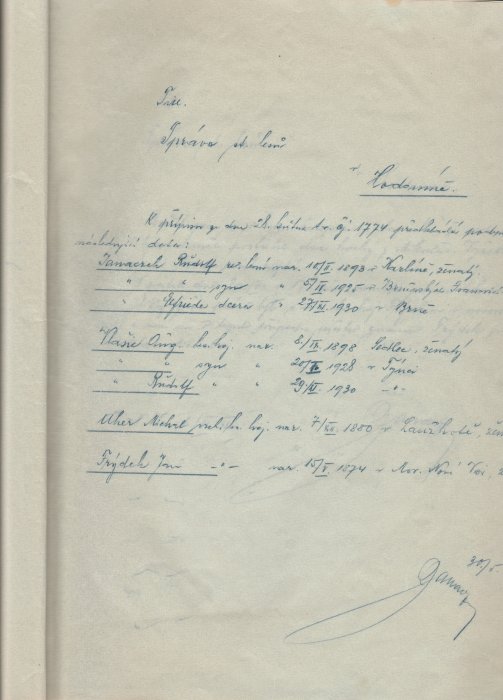 Správa st. lesů
v Hodoníně.
K přípisu ze dne 28. května t.r. čj. 1774 předkládá podepsaný
následující data:
Janaczek Rudolf nar. 10/II. 1893 v Karlíně, ženatý
" " syn " 5/IV. 1925
" Elfrieda dcera " 27/VI. 1930 v Brně
Vašíř Aug. ho. hoj. nar. 2./IV. 1898 Sedlec, ženatý
" " syn " 20/V. 1928 v Týnci
" Rudolf " " 29/IV. 1930 -"-
Uher Michal ho. hoj. nar. 7/XII. 1880 v Lanžhotě, žen
Frýdek Jan -"- nar. 15/V. 1874 v Mor. Nové Vsi,
30/5.